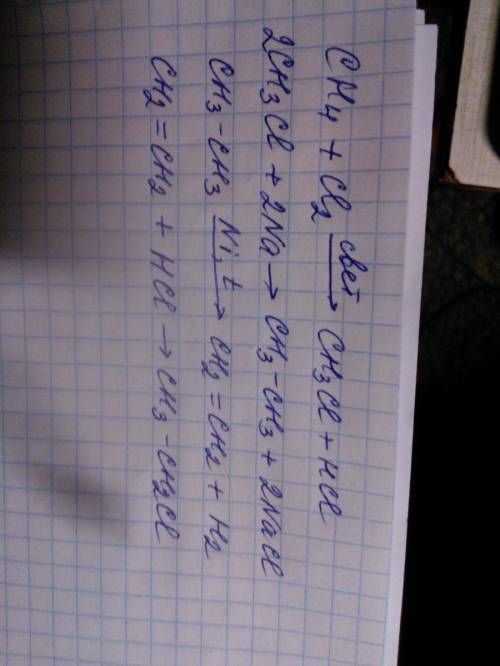 CH4 + Cl2 свет→ CH3Cl + HCl
2CH3Cl + 2Na → CH3 - CH3 + 2NaCl
CH3 - CH3 Ni, t→ CH2 = CH2 + H2
CH2 = CH2 + HCl → CH3 - CH2Cl